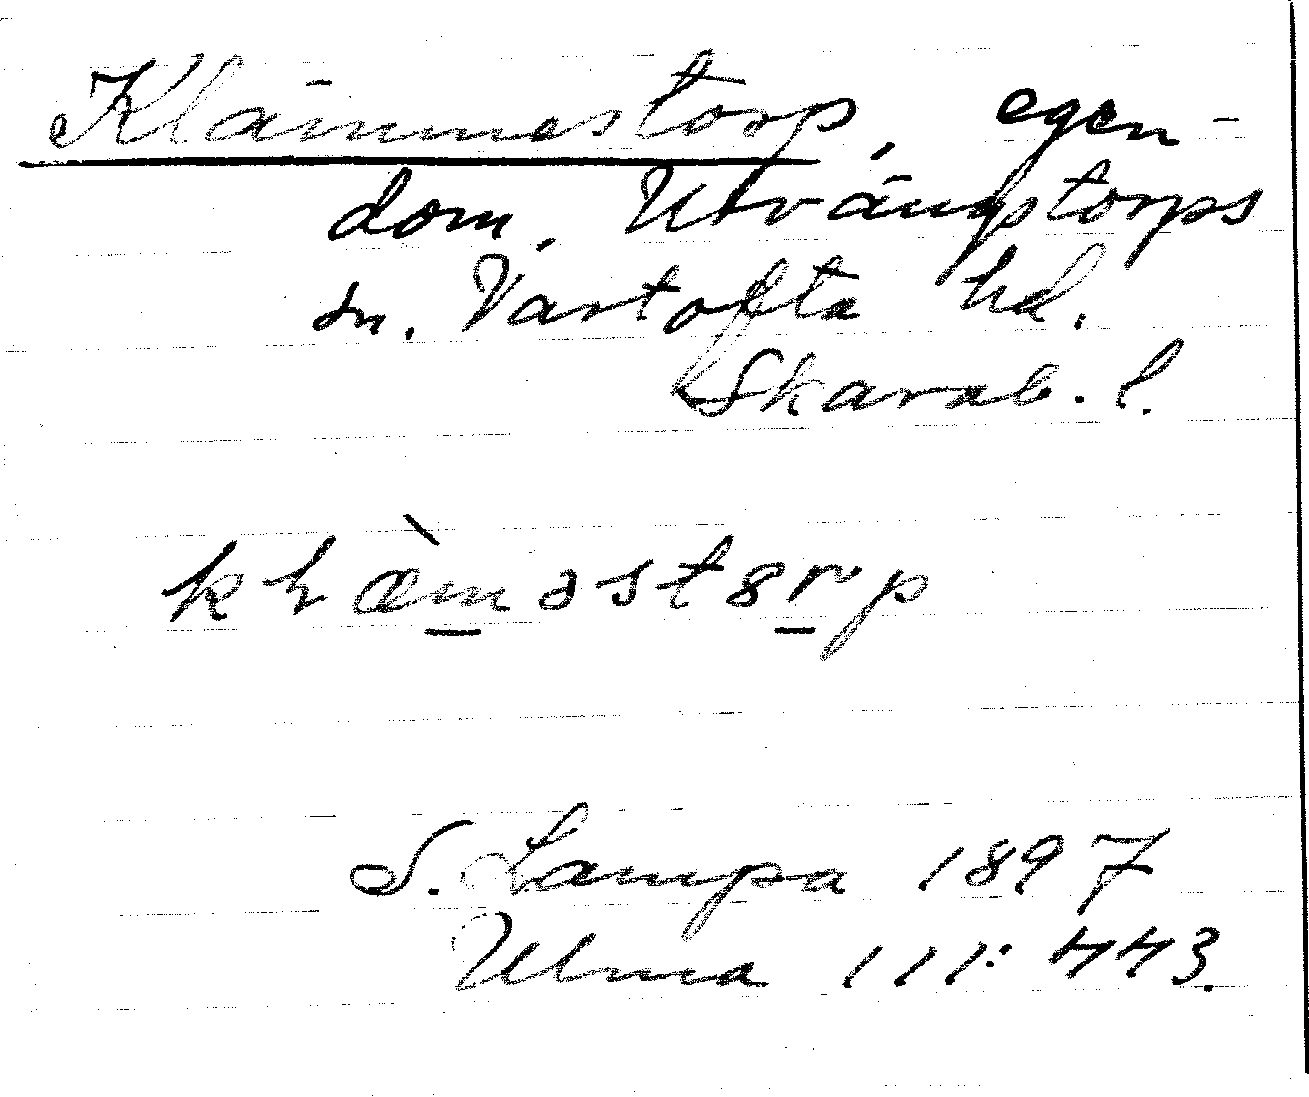 Klämmestorp, egen-
dom, Utvängstorps
sn. Vartofta hd.
Skarab. l.
S. Lampa 1897
Ulma 111:443.